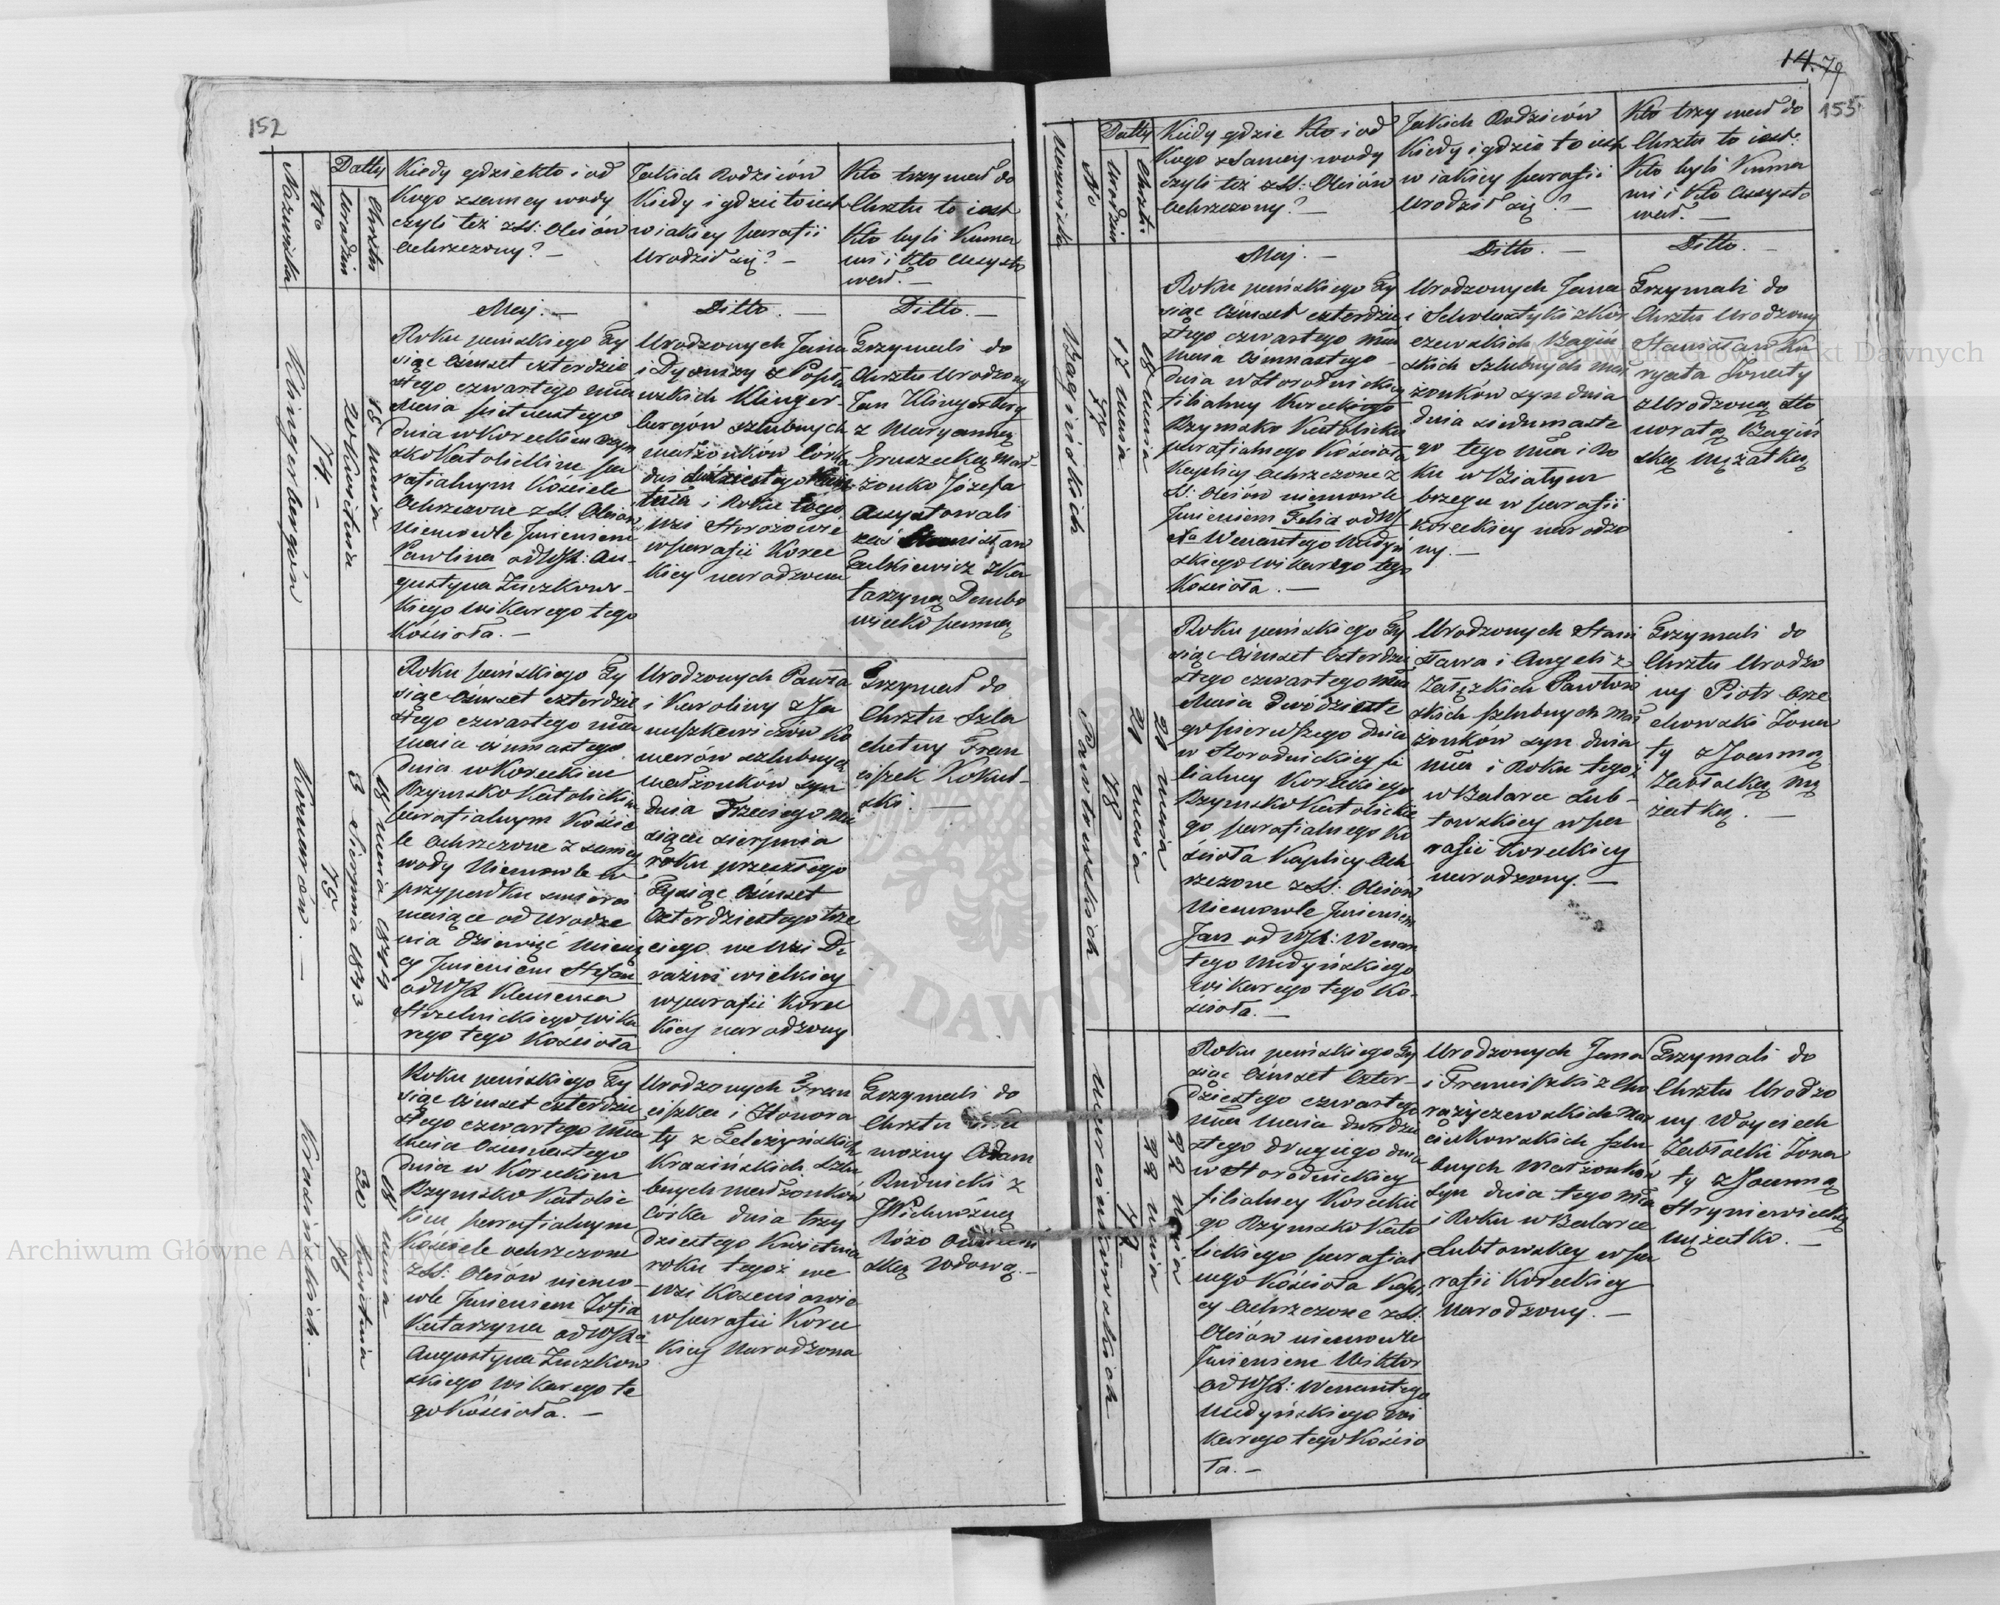 152
Nazwiska
No
Datty
Urodzin
Chrztu
Kiedy gdzie kto i od
Kogo z samey wody
czyli też z SS: Olejów
ochrzczony? —
Jakich Rodziców
Kiedy i gdzie to iest
w iakiey parafii
Urodził się? —
Kto trzymał do
Chrztu to iest
Kto byli Kuma
mi i Kto Assysto
wał. —
Maj. —
Ditto. —
Ditto. —
Klingerbergów
74. —
20 Kwietnia
15 maia
Roku pańskiego Ty
siąc ósmset czterdzie
stego czwartego mca
Maia piętnastego
dnia w Koreckim Rzym
sko Katolickim pa
rafialnym Kościele
Ochrzczone z SS Olejów
niemowle Imieniem
Pawlina od WJX: Au-
gustyna Zuczkows-
kiego wikarego tego
Kościoła. —
Urodzonych Jana
i Dyonizy z Popła
wskich Klinger-
bergów szlubnych
małżonków córka
dnia dwudziestego Kwie
tnia i Roku tego
wsi Storożowie
w parafii Korec
kiey narodzona
Trzymali do
Chrztu Urodzony
Jan Klingerberg
z Maryanną
Gruszecką Mał-
żonką Józefa
Assystowali
zaś Stanisław
Kataryną Dembo
wiecką panną
Komarów. —
75
3 Sierpnia 1843
18 maia 1844
Roku pańskiego Ty
siąc ósmset czterdzie
stego czwartego mca
maia ósmnastego
dnia w Koreckim
Rzymsko Katolickim
parafialnym Koście
le ochrzczone z samey
wody Niemowle w
przypadku śmierci
maiące od urodze
nia dziewięć miesię
cy Imieniem Stefan
od WJX Klemensa
Strzelnickiego wika
rego tego Kościoła
Urodzonych Pawła
i Karoliny z Ja
nuszkiewiczów Ko
marów szlubnych
małżonków syn
dnia Trzeciego mie
siąca sierpnia
roku przeszłego
Tysiąc ósmset
czterdziestego trze
ciego we wsi De
razni wielkiey
w parafii Korec
kiey narodzony
Trzymał do
Chrztu Szla
chetny Fran
ciszek Kokul-
ski. —
Krasińskich. —
76
30 Kwietnia
18 maia
Roku pańskiego Ty
siąc ósmset czterdzie
stego czwartego mca
maia ósmnastego
dnia w Koreckim
Rzymsko Katolic
kim parafialnym
Kościele ochrzczone
z SS: Olejów niemo-
wle Imieniem Zofia
Katarzyna od WJXa
Augustyna Zuczkow
skiego wikarego te
go Kościoła. —
Urodzonych Fran
ciszka i Honora
ty z Żeleżyńskich
Krasińskich szlu
bnych małżonków
córka dnia trzy
dziestego Kwietnia
roku tegoż we
wsi Kozensiowie
w parafii Korec
kiey narodzona
Trzymali do
Chrztu Wiel
możny Adam
Rudnicki z
JWielmożną
Różą
ską wdową. —
14. 79
153
Nazwiska
No
Datty
Urodzin
Chrztu
Kiedy gdzie Kto i od
Kogo z samey wody
czyli też z SS: Olejów
ochrzczony? —
Jakich Rodziców
Kiedy i gdzie to iest
w iakiey parafii
Urodził się? —
Kto trzymał do
Chrztu to iest:
Kto byli Kuma
mi i Kto Assysto
wał. —
Maj. —
Ditto. —
Ditto. —
Bagińskich
77
17 maia
18 maia
Roku pańskiego Ty
siąc ósmset czterdzie
stego czwartego mca
maia ósmnastego
dnia w Horodnickiey
filialney Koreckiego
Rzymsko Katolickiego
parafialnego Kościoła
Kaplicy ochrzczone z
SS: Olejów niemowle
Imieniem Felix od WJ
Xa Wenantego Mudyń
skiego wikarego tego
Kościoła. —
Urodzonych Jana
i Scholastyki z Kor
czewskich Bagiń
skich szlubnych mał
żonków syn dnia
dnia siedmnaste
go tego mca i Ro
ku w Białym
brzegu w parafii
Koreckiey narodzo
ny. —
Trzymali do
Chrztu Urodzony
Stanisław Ku
ryata Żonaty
z Urodzoną Ho
noratą Bagiń
ską mężatką
Pawłowskich
78
21 maia
21 maia
Roku pańskiego Ty
siąc ósmset czterdzie
stego czwartego mca
Maia Dwódzieste
go pierwszego dnia
w Horodnickiey fi
lialney Koreckiego
Rzymsko Katolickie
go parafialnego Ko
ścioła Kaplicy Och
rzczone z SS: Olejów
Niemowle Imieniem
Jan od WJX: Wenan
tego Mudyńskiego
Wikarego tego Ko-
ścioła. —
Urodzonych Stani
sława i Angeli z
Załęzkich Pawłow
skich szlubnych mał
żonków syn dnia
mca i Roku tegoż
w Balarce Lub-
towskiey w pa
rafii Koreckiey
narodzony. —
Trzymali do
Chrztu Urodzo
ny Piotr Orze
chowski Żona
ty z Joanną
Zabłocką mę
żatką. —
Marcinkowskich
79
22 maia
22 maia
Roku pańskiego Ty
siąc ósmset czter-
dziestego czwartego
mca Maia dwudzie
stego drugiego dnia
w Horodnickiey
filialney Koreckie
go Rzymsko Kato
lickiego parafial
nego Kościoła Kapli
cy ochrzczone z SS:
Olejów niemowle
Imieniem Wiktor
od WJX: Wenantego
Mudyńskiego wi
karego tego Kościo
ła. —
Urodzonych Jana
i Franciszki z Cho
rążyczewskich Mar
cinkowskich szlu
bnych Małżonków
syn dnia tego mca
i Roku w Balarce
Lubtowskey w pa
rafii Koreckiey
Narodzony. —
Trzymali do
Chrztu Urodzo
ny Woyciech
Zabłocki Żona
ty z Joanną
Hryniewiecką
mężatką. —
Archiwum Główne Akt Dawnych
Archiwum Główne Akt D